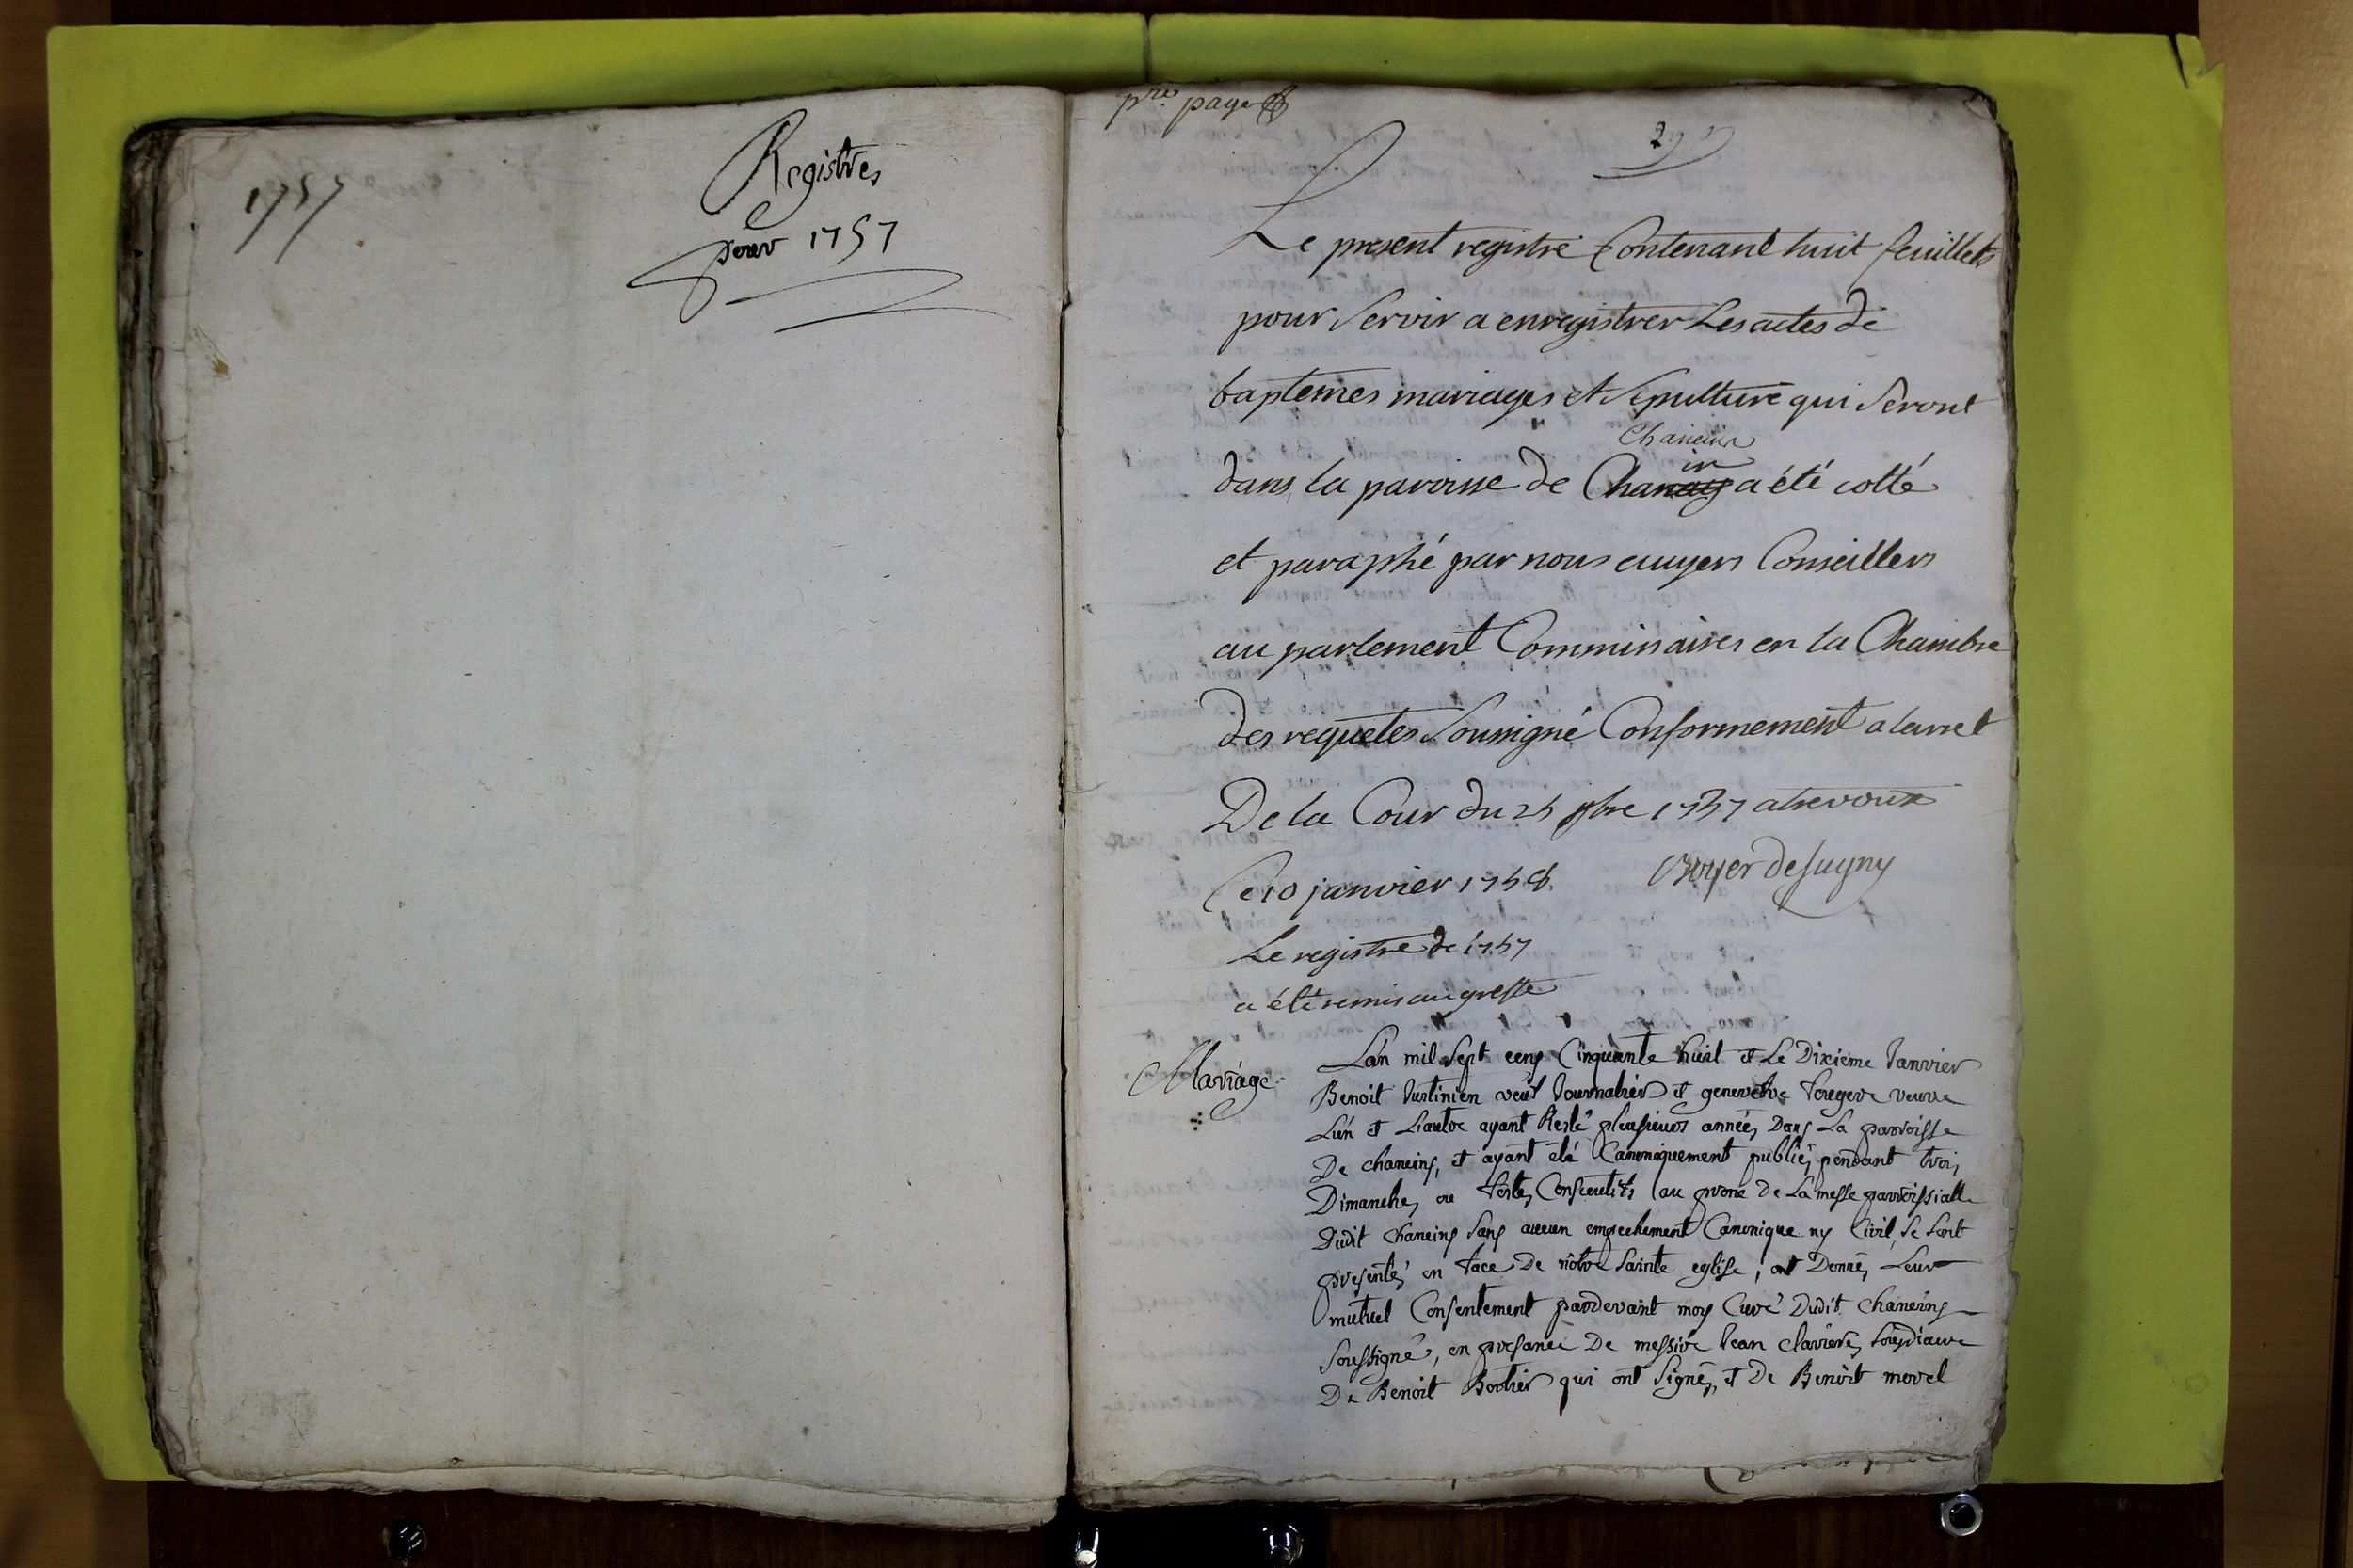 1757
Registres
pour 1757
pre. page
2
Le present registre Contenant huit feuillets
pour servir a enregistrer Les actes de
baptemes mariages et sepulture qui seront
Chaneins
in
dans la paroisse de Chanay a été cotté
et paraphé par nous ecuyers Conseillers
au parlement Commissaires en la Chambre
des requetes soussigné Conformement a larret
De la Cour du 25 9bre 1757 a trevoux
Ce 10 janvier 1758. Boyer de Sugny
Le registre de 1757
a été remis au greffe
Mariage
L'an mil sept cens Cinquante huit et Le Dixieme Janvier
Benoit Justinien veuf Journalier et genevieve veuve
L'un et L'autre ayant Resté plusieurs années Dans La parroisse
De chaneins, et ayant été Canoniquement publiés pendant trois
Dimanches ou festes Consecutifs au prone de La messe parroissialle
Dudit chaneins sans aucun empechement Canonique ny Civil, se sont
presentés en face De nôtre sainte eglise, ont Donnés Leur
mutuel Consentement pardevant moy Curé Dudit chaneins
soussigné, en presance De messire Jean claviere,
De Benoit qui ont signés, et De Benoit morel